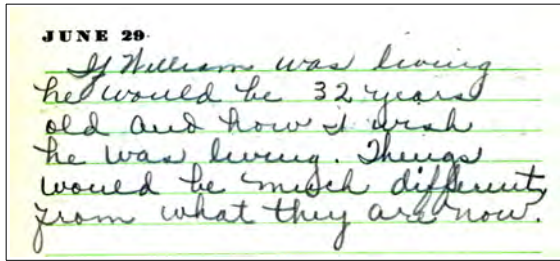 JUNE 29
If William was living
he would be 32 years
old and how I wish
he was living. Things
would be much different,
from what they are now.